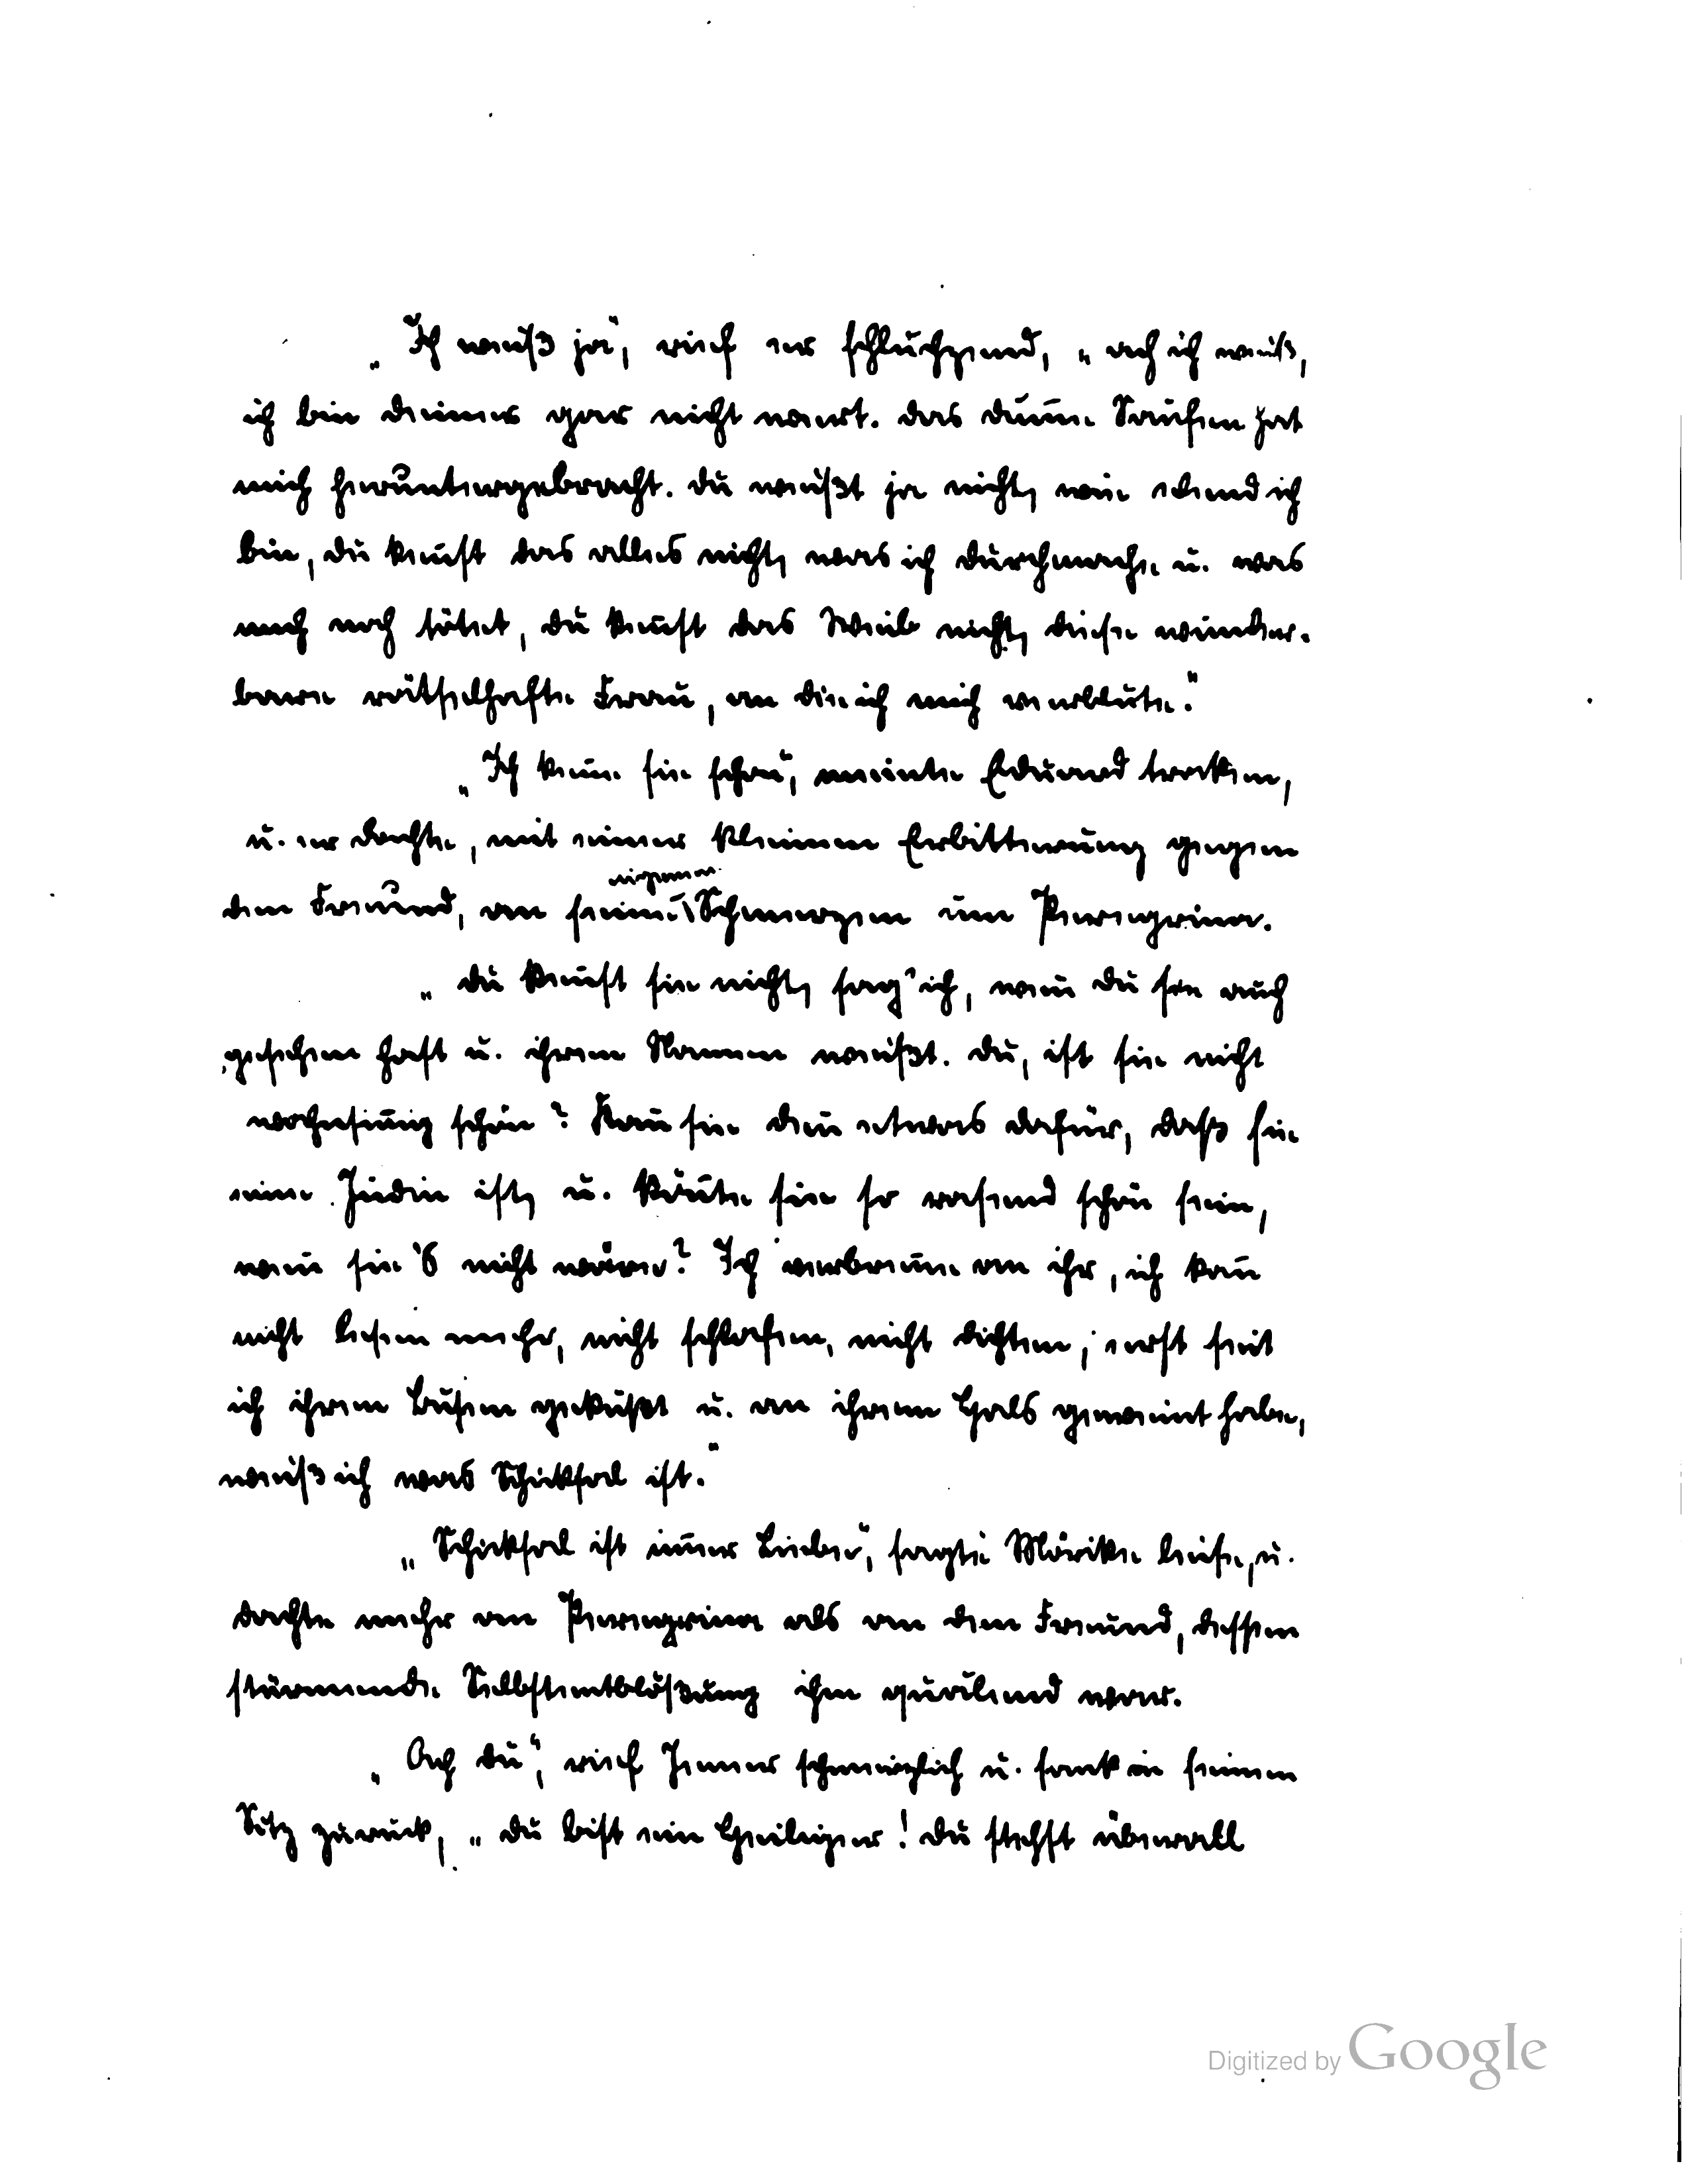 „Ich weiß ja“, rief er schluchzend, „ach ich weiß,
ich bin deiner gar nicht wert. Das dum̄e Saufen hat
mich heruntergebracht. Du weißt ja nicht, wie elend ich
bin, du ken̄st das alles nicht, was ich durchmache u. was
mich noch tötet, du ken̄st das Weib nicht, diese wunder-
bare rätselhafte Frau, an die ich mich verblute.“
„Ich ken̄e sie schon“, meinte Eduard trocken,
u. er dachte, mit einer kleinen Erbitterung gegen
den Freund, an seine eigenen Schmerzen um Peregrina.
„Du ken̄st sie nicht, sag' ich, wen̄ du sie auch
gesehen hast u. ihren Namen weißt. Du, ist sie nicht
wahnsin̄ig schön? Kan̄ sie den̄ etwas dafür, daß sie
eine Jüdin ist, u. kön̄te sie so rasend schön sein,
wen̄ sie's nicht wäre? Ich verbren̄e an ihr, ich kan̄
nicht lesen mehr, nicht schlafen, nicht dichten; erst seit
ich ihren Busen geküßt u. an ihrem Hals geweint habe,
weiß ich was Schicksal ist.“
„Schicksal ist im̄er Liebe“, sagte Mörike leise, u.
dachte mehr an Peregrina als an den Freund, dessen
stürmende Selbstentblößung ihm quälend war.
„Ach du“, rief Jener schmerzlich u. sank in seinen
Sitz zurück, „du bist ein Heiliger! Du stehst überall
Digitized by Google